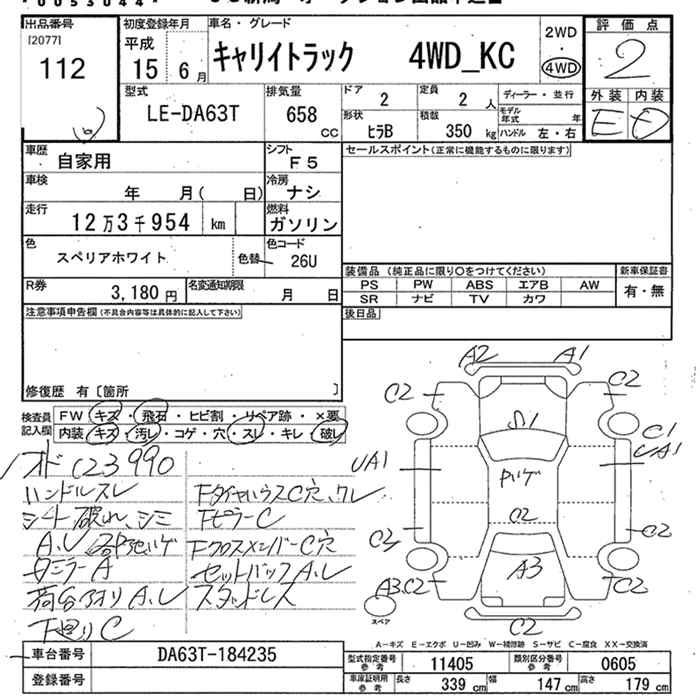 出品番号
[2077]
112
初度登録年月
平成
15 6 月
車名・グレード
キャリイトラック 4WD_KC
2WD
・
4WD
評価点
2
外装 内装
E D
型式
LE-DA63T
排気量
658 cc
ドア
2
定員
2 人
ディーラー・並行
形状
ヒラB
積載
350 kg
モデル年式 年
ハンドル 左・右
車歴
自家用
シフト
F5
セールスポイント(正常に機能するものに限ります)
車検
年 月( 日)
冷房
ナシ
走行
12万3千954 km
燃料
ガソリン
色
スペリアホワイト
色替
色コード
26U
装備品(純正品に限り○をつけてください)
新車保証書
PS PW ABS エアB AW
有・無
SR ナビ TV カワ
R券
3,180 円
名変通知期限
月 日
後日品
注意事項申告欄(不具合内容等は具体的に記入して下さい)
修復歴 有〔箇所 〕
検査員記入欄
FW キズ・飛石・ヒビ割・リペア跡・×要
内装 キズ・汚レ・コゲ・穴・スレ・キレ・破レ
123990
ハンドルスレ
シート破れ、シミ
タミラーA
荷台アオリA、レ
下廻りC
FタイヤハウスC穴、クレ
FピラーC
FクロスメンバーC穴
セットバックA、レ
スタッドレス
A2 A1
C2 C2
S1
C1
UA1 UA1
C2
C2
C2
A3
A3C2 C2
スペア
C2
A-キズ E-エクボ U-凹み W-補修跡 S-サビ C-腐食 XX-交換済
車台番号
DA63T-184235
型式指定番号 参考
11405
類別区分番号 参考
0605
登録番号
車庫証明用 参考
長さ 339 cm 幅 147 cm 高さ 179 cm